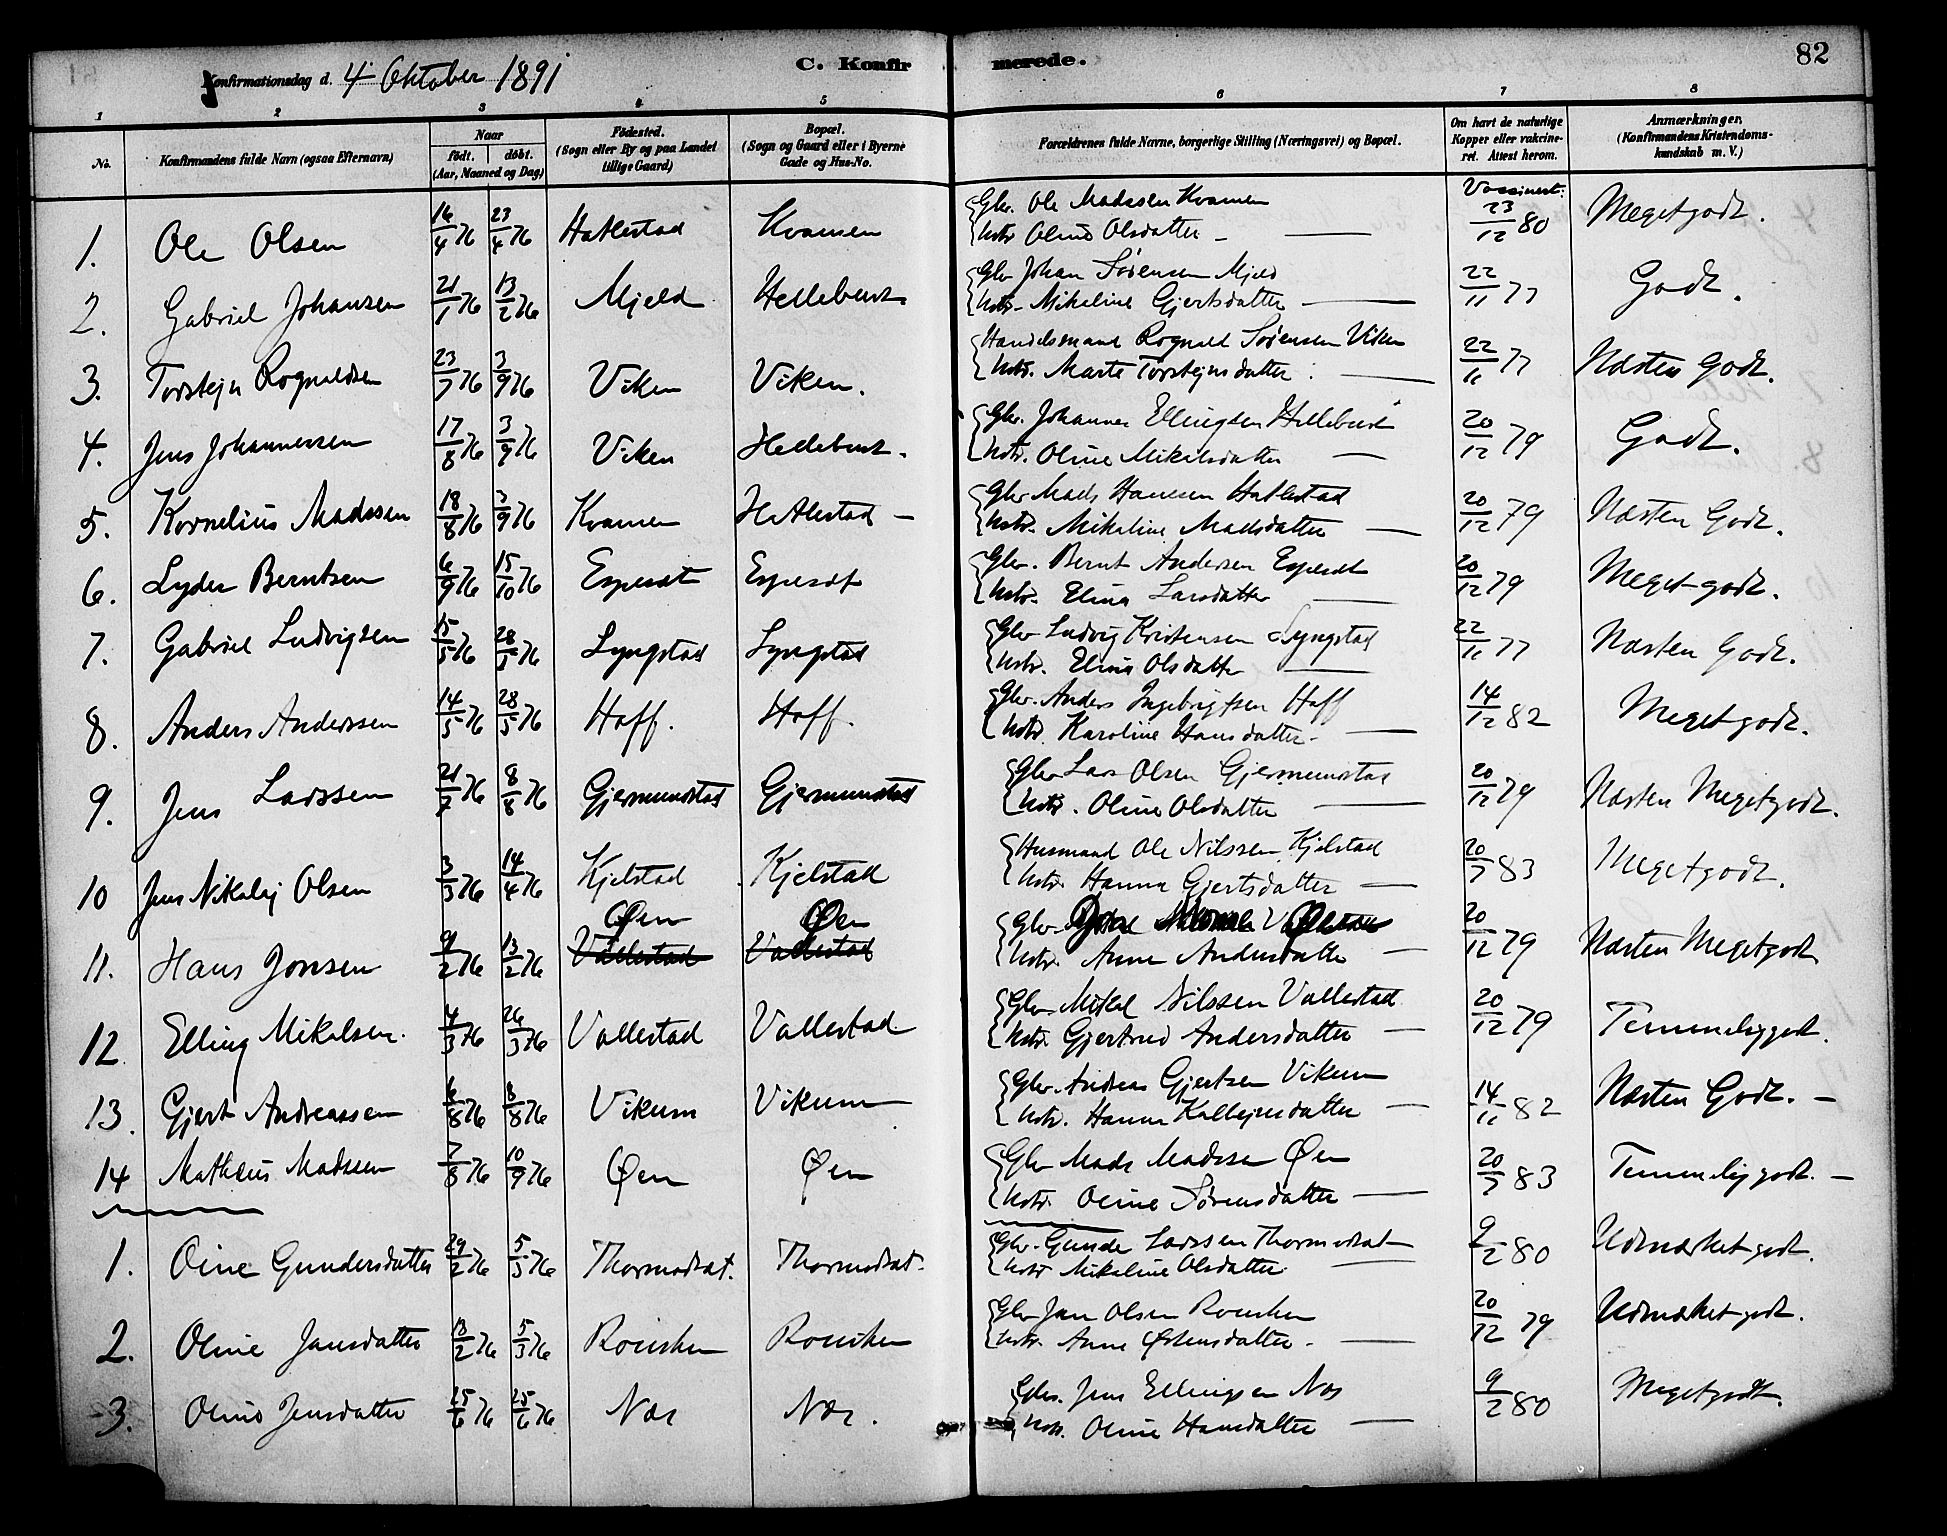 82
Konfirmationsdag d. 4 Oktober 1891
C. Konfirmerede.
1 2 3 4 5 6 7 8
No.
Konfirmandens fulde Navn (ogsaa Efternavn)
Naar
født. døbt.
(Aar, Maaned og Dag)
Fødested.
(Sogn eller By og paa Landet
tillige Gaard)
Bopæl.
(Sogn og Gaard eller i Byerne
Gade og Hus-No.
Forældrenes fulde Navne, borgerlige Stilling (Næringsvei) og Bopæl.
Om havt de naturlige
Kopper eller vakcine-
ret. Attest herom.
Anmærkninger.
(Konfirmandens Kristendoms-
kundskab m. V.)
1. Ole Olsen 16/4 76 23/4 76 Hatlestad Kvamen Gbr. Ole Madssen Kvamen
Hstr. Oline Olsdatter — Vaccinert: 23/12 80 Megetgodt.
2. Gabriel Johansen 21/1 76 13/2 76 Mjeld Hellebust Gbr Johan Sørensen Mjeld
Hstr. Mikeline Gjertsdatter — 22/11 77 Godt.
3. Torstejn Rognaldsen 23/7 76 3/9 76 Viken Viken. Handelsmand Rognald Sørensen Viken
Hstr. Marte Torstejnsdatter. — 22/11 77 Næsten Godt.
4. Jens Johannessen 17/8 76 3/9 76 Viken Hellebust. Gbr. Johannes Ellingsen Hellebust
Hstr. Oline Mikelsdatter — 20/12 79 Godt.
5. Kornelius Madssen 18/8 76 3/9 76 Kvamen Hatlestad — Gbr Mads Hansen Hatlestad
Hstr. Mikeline Madsdatter — 20/12 79 Næsten Godt.
6. Lyder Berntsen 6/9 76 15/10 76 Espesæt Espesæt Gbr. Bernt Andersen Espesæt
Hstr. Elina Larsdatter — 20/12 79 Meget godt.
7. Gabriel Ludvigsen 15/5 76 28/5 76 Lyngstad Lyngstad Gbr Ludvig Kristensen Lyngstad
Hstr. Elina Olsdatter — 22/11 77 Næsten Godt.
8. Anders Anderssen 14/5 76 28/5 76 Hoff. Hoff. Gbr. Anders Ingebrigtsen Hoff
Hstr. Karoline Hansdatter. — 14/12 82 Megetgodt.
9. Jens Larssen 21/7 76 8/8 76 Gjermundstad Gjermundstad Gbr Lars Olsen Gjermundstad
Hstr. Oline Olsdatter — 20/12 79 Næsten Megetgodt.
10 Jens Nikolaj Olsen 3/3 76 14/4 76 Kjelstad Kjelstad Husmand Ole Nilssen Kjelstad
Hstr. Hanna Gjertsdatter — 20/7 83 Megetgodt.
11. Hans Jonsen 9/2 76 13/2 76 Øen Vallestad Øen Vallestad Gbr.
Hstr. Anne Andersdatter — 20/12 79 Næsten Megetgodt
12. Elling Mikelsen. 4/3 76 26/3 76 Vallestad Vallestad Gbr Mikel Nilssen Vallestad
Hstr. Gjertrud Andersdatter — 20/12 79 Temmeliggodt.
13. Gjert Andreassen 6/8 76 8/8 76 Vikum Vikum Gbr. Andreas Gjertsen Vikum
Hstr. Hanna Kolbejnsdatter — 14/11 82 Næsten Godt. —
14 Matheus Madssen 7/8 76 10/9 76 Øen Øen Gbr Mads Madssen Øen
Hstr. Oline Sørensdatter — 20/7 83 Temmeliggodt. —
1. Oline Gundersdatter 29/2 76 5/3 76 Thormodsæt. Thormodsæt. Gbr. Gunder Larssen Thormodsæt
Hstr Mikeline Olsdatter — 9/2 80 Udmærket godt.
2. Oline Jansdatter 13/2 76 5/3 76 Gbr Jan Olsen
Hstr. Anne Østensdatter. — 20/12 79 Udmærket godt.
3. Oline Jensdatter 25/6 76 25/6 76 Næs Næs. Gbr. Jens Ellingsen Næs
Hstr. Oline Hansdatter — 9/2 80 Megetgodt.